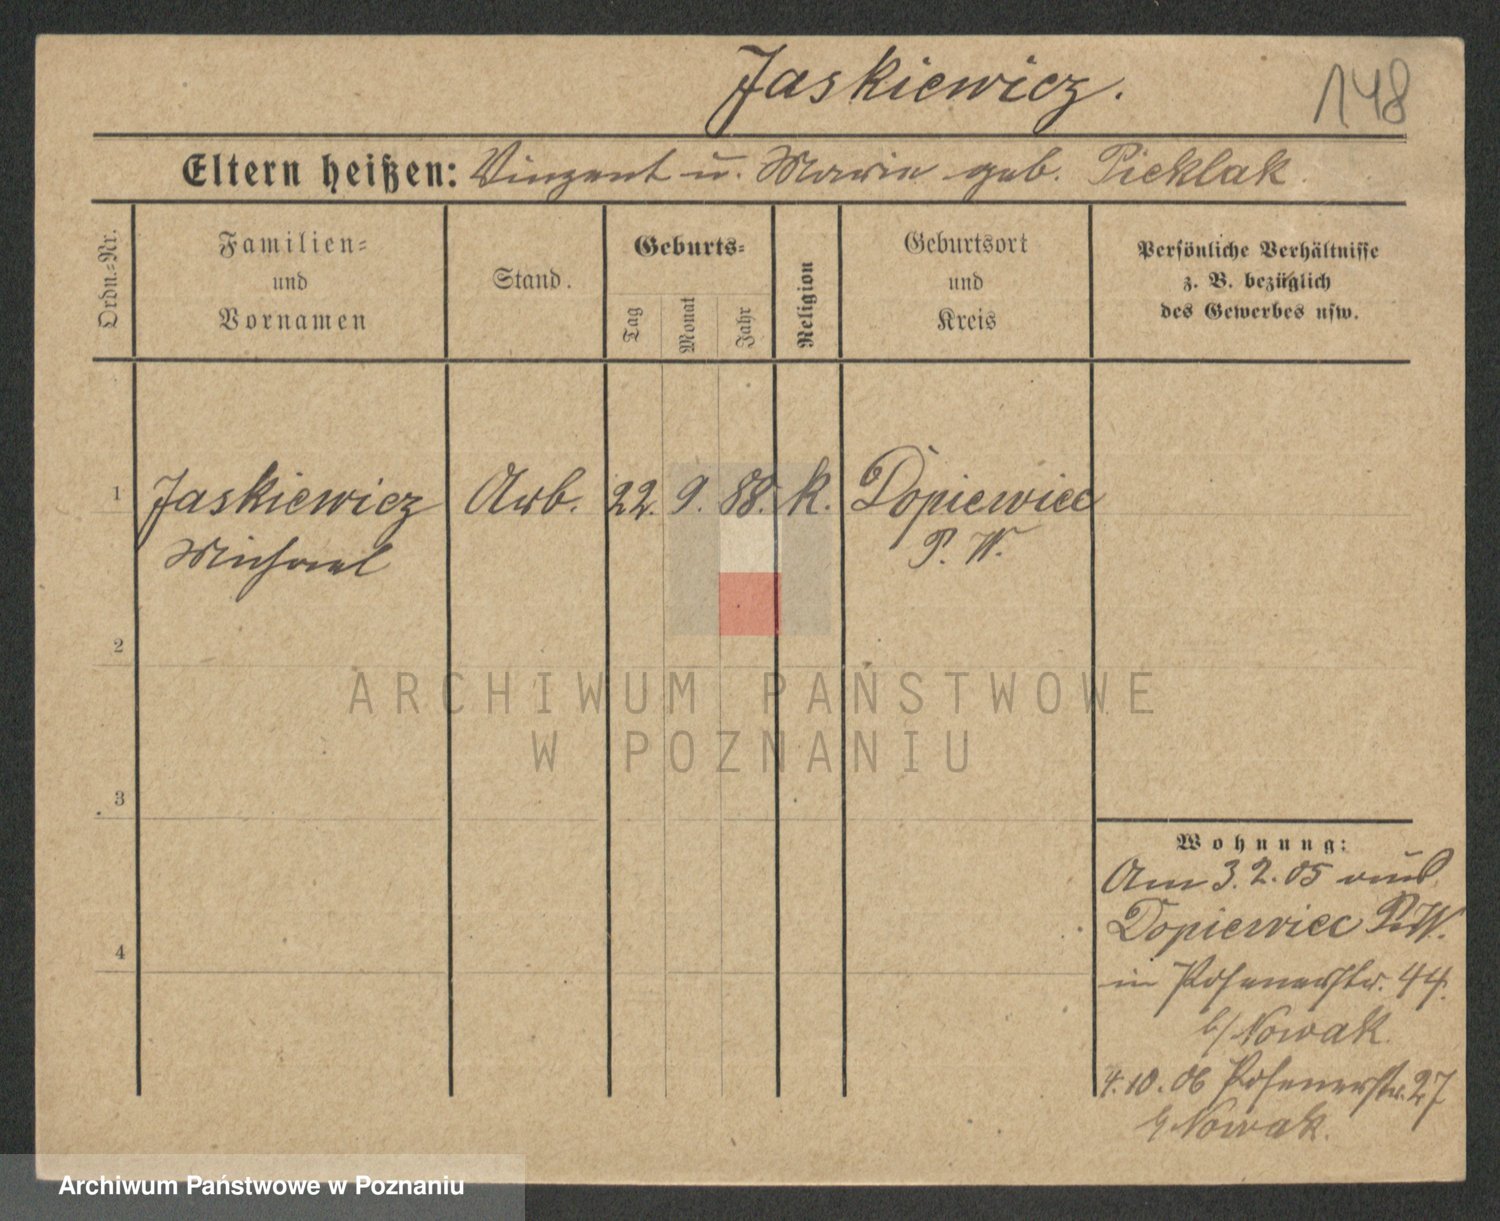 Jaskiewicz.
148
Eltern heißen: Vinzent u. Marie geb. Pieklak.
Ordn.=Nr.
Familien=
und
Vornamen
Stand.
Geburts=
Tag
Monat
Jahr
Religion
Geburtsort
und
Kreis
Persönliche Verhältnisse
z. B. bezüglich
des Gewerbes usw.
1
Jaskiewicz Arb. 22. 9. 88. k. Dopiewiec
Michael P. W.
2
ARCHIWUM PAŃSTWOWE
W POZNANIU
3
Wohnung:
Am 3.2.05 aus
Dopiewiec P.W.
in Posenerstr. 44.
b/ Nowak.
4
4.10.06 Posenerstr. 27
b/ Nowak.
Archiwum Państwowe w Poznaniu